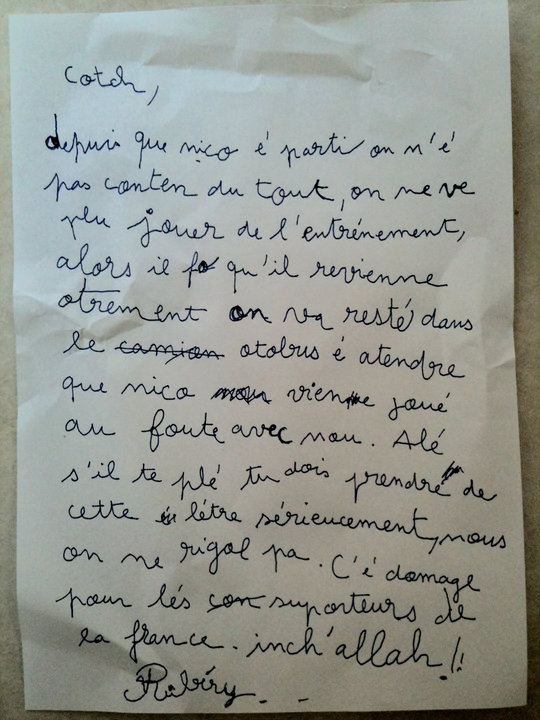 cotch,
depuis que nico é parti on n'é
pas conten du tout, on ne ve
plu jouer de l'entrénement,
alors il fo qu'il revienne
otrement on va resté dans
le camion otobus é atendre
que nico nou vienne joué
au foute avec nou. Alé
s'il te plé tu dois prendre de
cette létre sérieucement, nous
on ne rigol pa. C'é domage
pour lés con suporteurs de
la france. inch'allah !!
Ribéry...